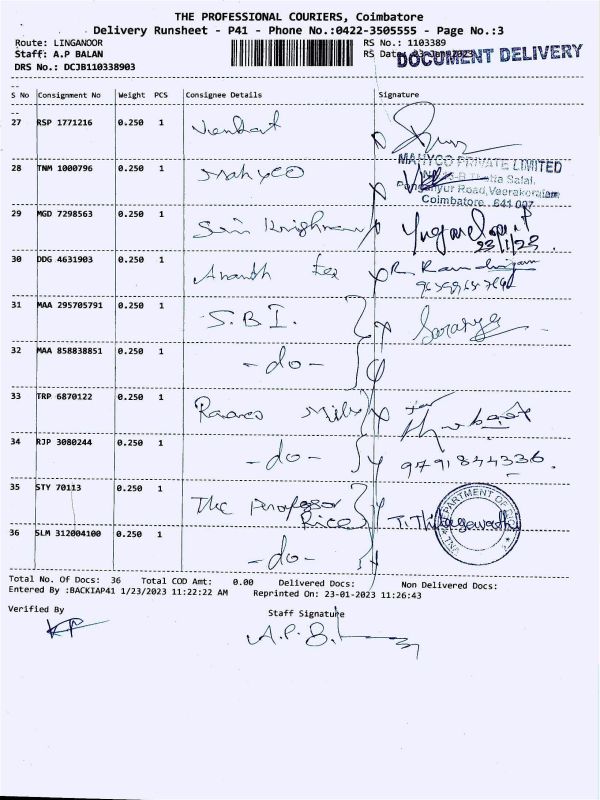 THE PROFESSIONAL COURIERS, Coimbatore
Delivery Runsheet - P41 - Phone No.:0422-3505555 - Page No.:3
Route: LINGANOOR
RS No.: 1103389
Staff: A.P BALAN
RS Date: 23-Jan-2023
DOCUMENT DELIVERY
DRS No.: DCJB110338903
S No Consignment No Weight PCS Consignee Details Signature
27 RSP 1771216 0.250 1 Venkat
28 TNM 1000796 0.250 1 Mahyco
MAHYCO PRIVATE LIMITED
Road, Veerakeralam
Coimbatore - 641 007
29 MGD 7298563 0.250 1 Sri Krishna
23/1/23
30 DDG 4631903 0.250 1 Ananth Tex
31 MAA 295705791 0.250 1 S.B.I.
32 MAA 858838851 0.250 1 -do-
33 TRP 6870122 0.250 1
34 RJP 3080244 0.250 1 -do- 9791844336.
35 STY 70113 0.250 1 The Professor Rice
DEPARTMENT OF RICE
36 SLM 312004100 0.250 1 -do-
Total No. Of Docs: 36 Total COD Amt: 0.00 Delivered Docs: Non Delivered Docs:
Entered By :BACKIAP41 1/23/2023 11:22:22 AM Reprinted On: 23-01-2023 11:26:43
Verified By
Staff Signature
A.P.B